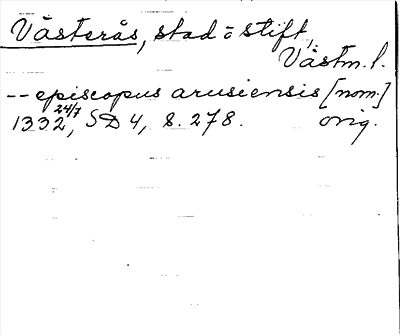 Västerås, stad o stift,
Västm. l.
-- episcopus arusiensis [nom.]
1332 24/7, SD 4, s. 278. orig.